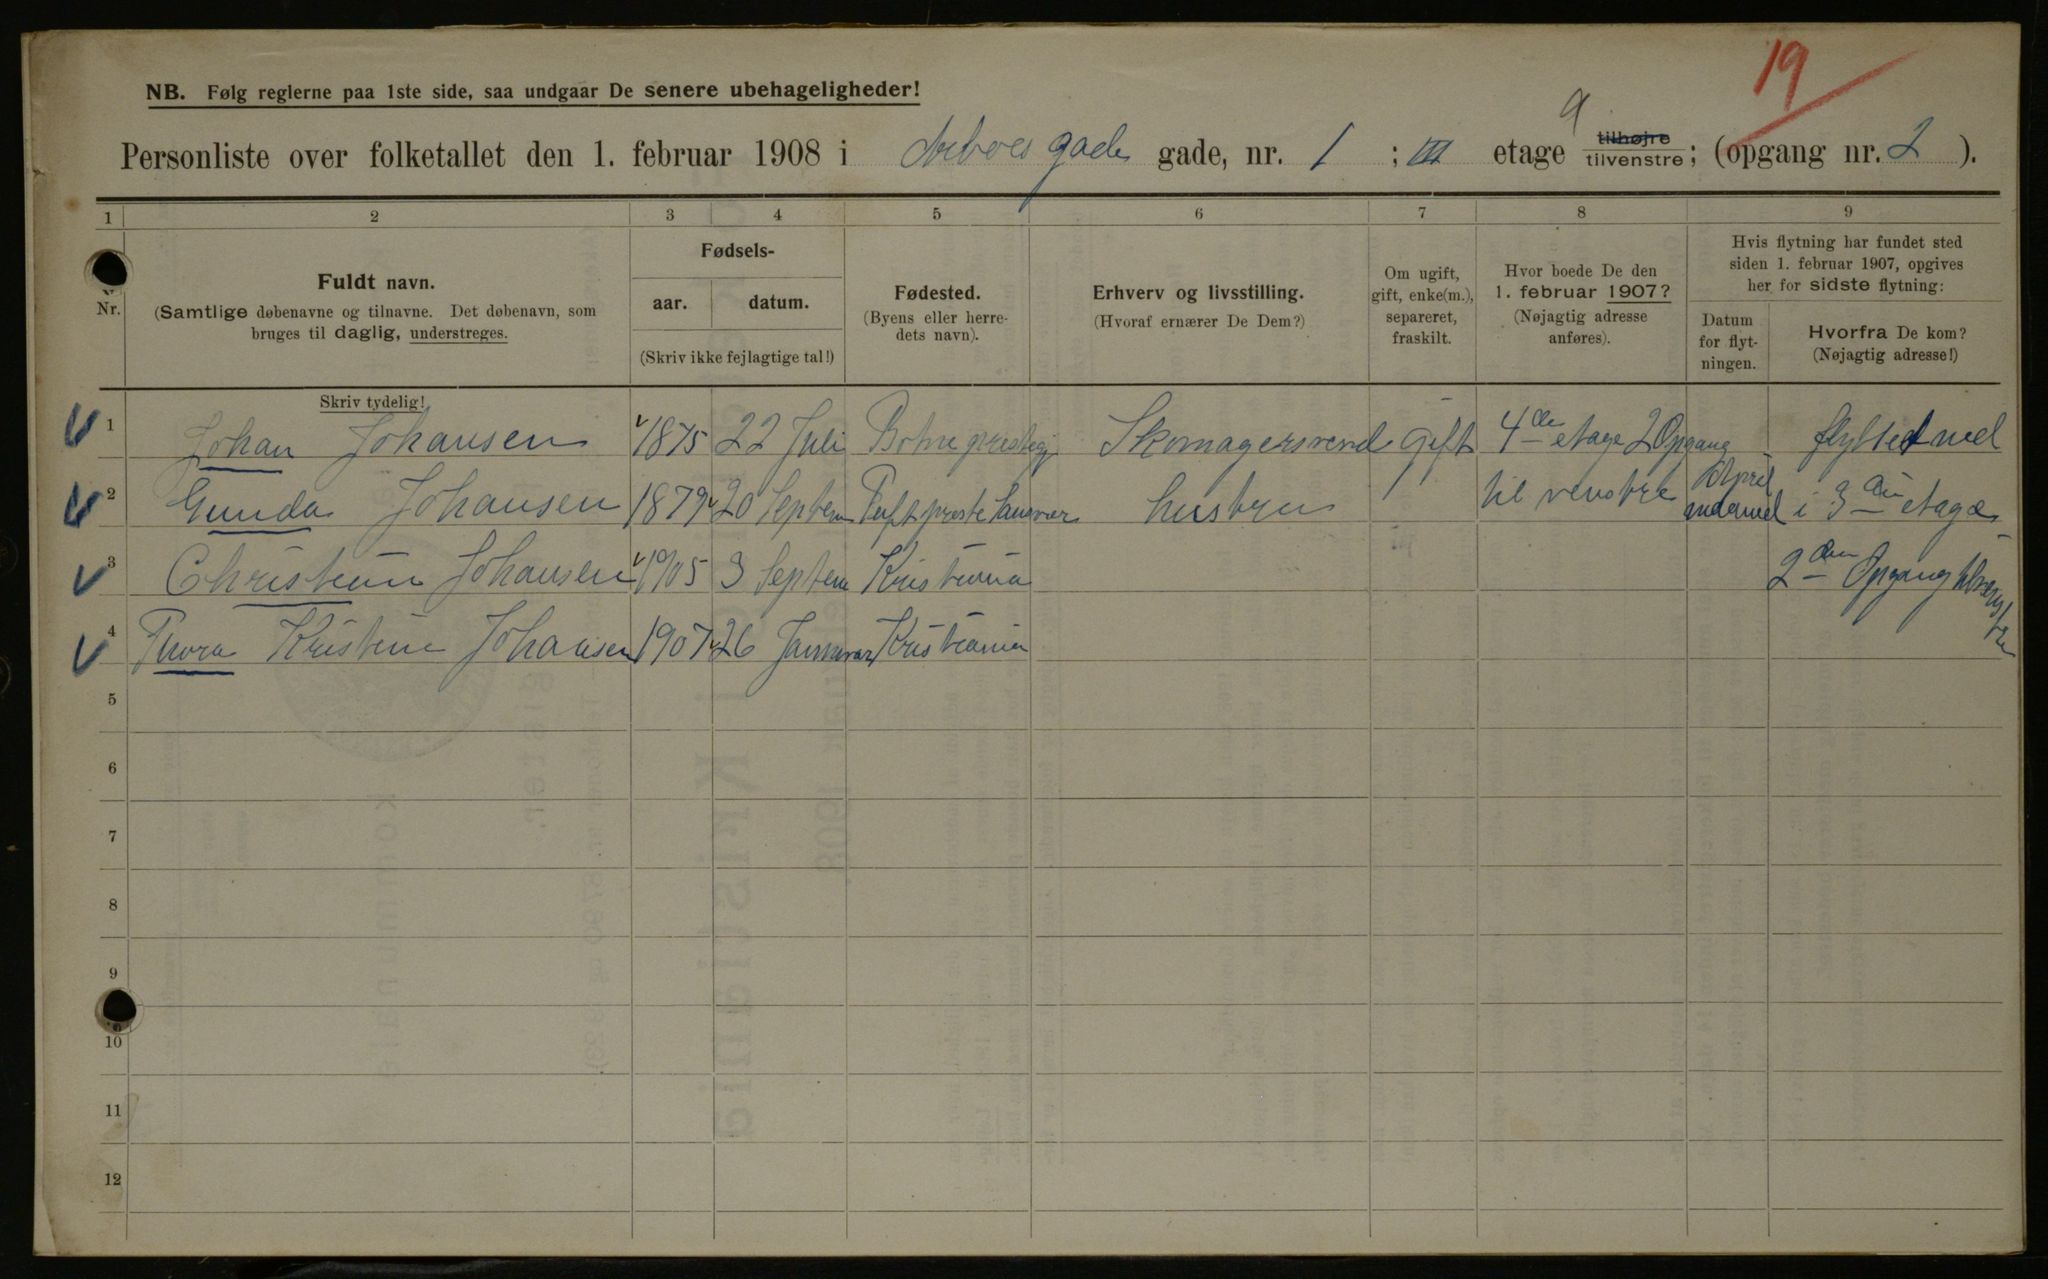 19
NB. Følg reglerne paa 1ste side, saa undgaar De senere ubehageligheder!
Personliste over folketallet den 1. februar 1908 i gade gade, nr. 1 ; III etage tilhøjre tilvenstre; (opgang nr. 2 ).
1 2 3 4 5 6 7 8 9
Nr.
Fuldt navn.
(Samtlige døbenavne og tilnavne. Det døbenavn, som
bruges til daglig, understreges.
Skriv tydelig!
Fødsels-
aar. datum.
(Skriv ikke fejlagtige tal!)
Fødested.
(Byens eller herre-
dets navn).
Erhverv og livsstilling.
(Hvoraf ernærer De Dem?)
Om ugift,
gift, enke(m.),
separeret,
fraskilt.
Hvor boede De den
1. februar 1907?
(Nøjagtig adresse
anføres).
Hvis flytning har fundet sted
siden 1. februar 1907, opgives
her for sidste flytning:
Datum
for flyt-
ningen.
Hvorfra De kom?
(Nøjagtig adresse!)
1 Johan Johansen 1875 22 Juli Botne prestegj Skomagersvend gift 4de etage 2 Opgang flytted ned
2 Gunda Johansen 1879 20 Septem hustru til venstre April i 3die etage
3 Christian Johansen 1905 3 Septem Kristiania 2den Opgang tilvenstre
4 Thora Kristine Johansen 1907 26 Januar Kristiania
5
6
7
8
9
10
11
12